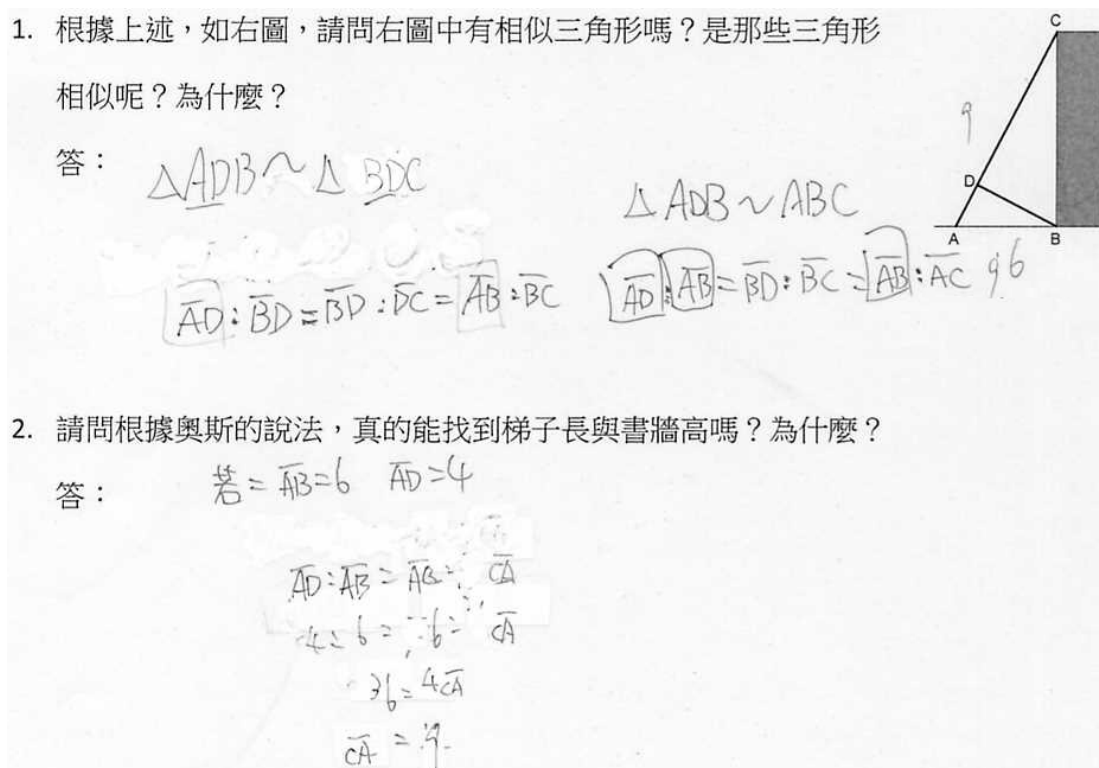 1. 根據上述，如右圖，請問右圖中有相似三角形嗎？是那些三角形
相似呢？為什麼？
答：
△ADB～△BDC
AD：BD＝BD：DC＝AB：BC
△ADB～ABC
AD：AB＝BD：BC＝AB：AC
96
C
9
D
A
B
2. 請問根據奧斯的說法，真的能找到梯子長與書牆高嗎？為什麼？
答：
若＝AB＝6 AD＝4
AD：AB＝AB：CA
4：6＝6：CA
36＝4CA
CA＝9